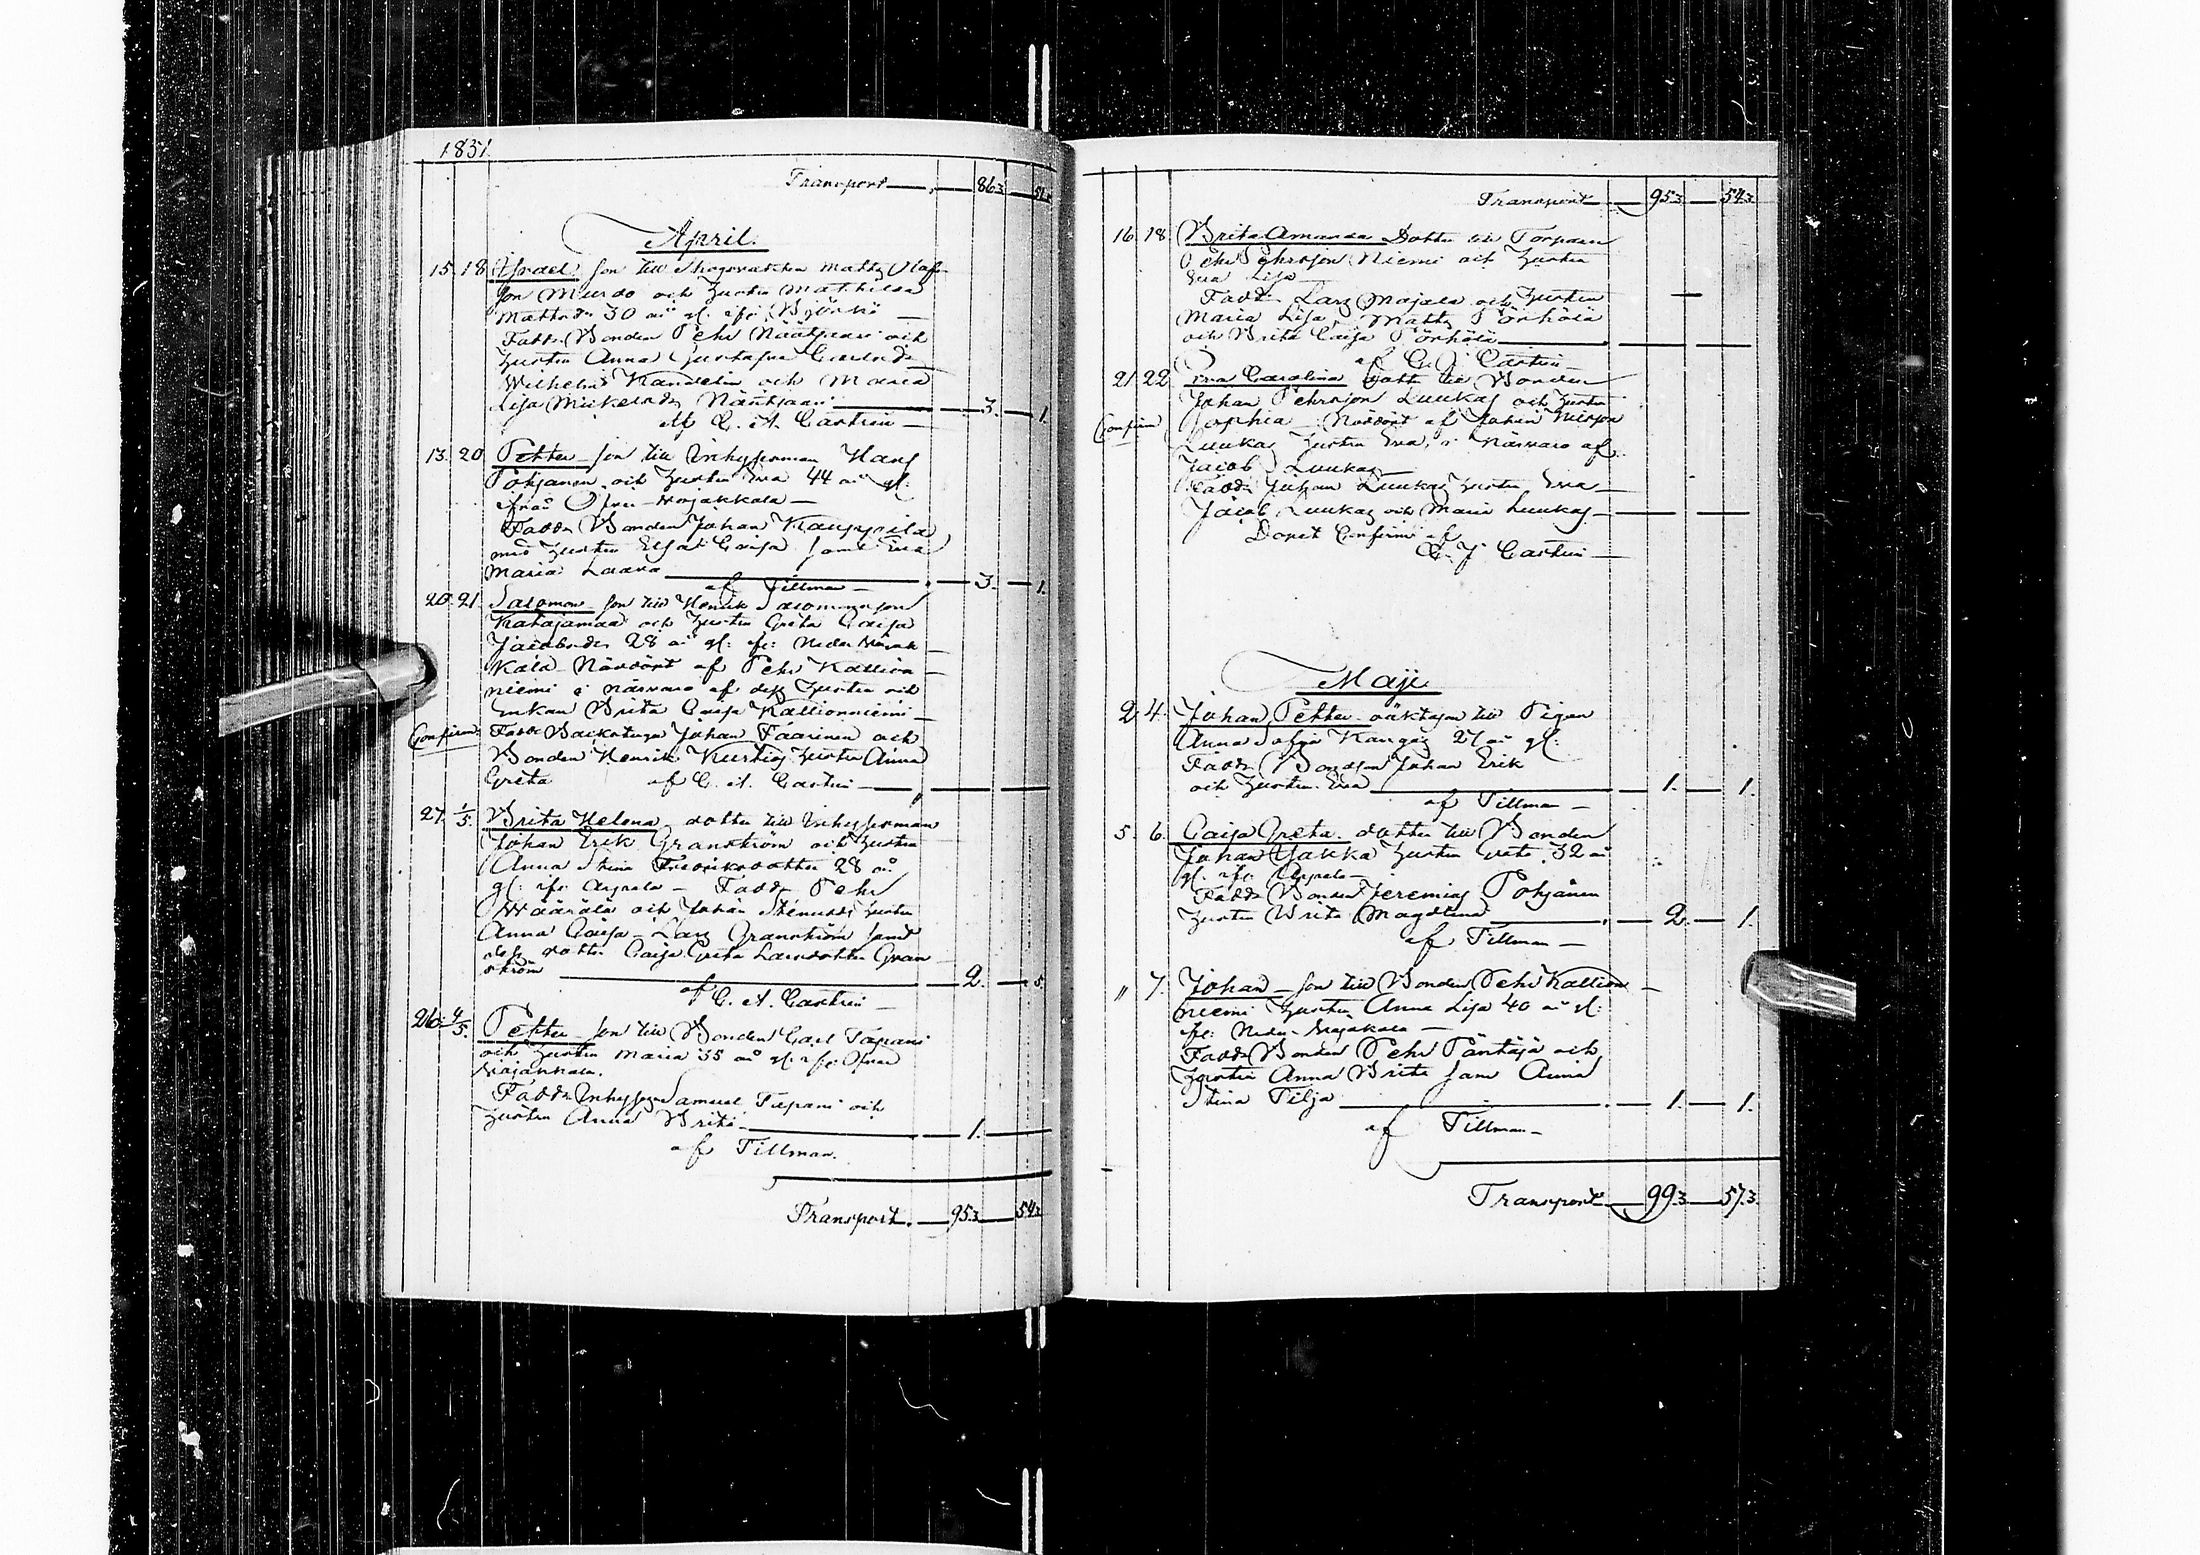 1831
Transport 863 51.3
April.
15. 18 Israel son till Skogvaktren Matts Olafs
son Murdo och hustru Mathilda
Mattsdr 30 år gl. ifr. Björkö
Fadd. Bonden Pehr Näätsaari och
hustru Anna Gustafva Carlsdr
Wilhelm Kandelin och Maria
Lisa Mickelsdr Näätsaari 3. 1.
af C. A. Castrén
13. 20 Petter son till Inhysesman Hans
Pohjanen och hustru Eva 44 år gl.
ifrån Öfver Wojakkala
Fadd. Bonden Johan Kauppila
med hustru Elsa Caisa samt Eva
Maria Laara 3. 1.
af Tillman
20. 21. Salomon son till Henrik Salomonsson
Katajamaa och hustru Greta Caisa
Jacobsdr 28 år gl. fr. Neder Wojak
kala Nöddöpt af Pehr Kallion
niemi i närvaro af dess hustru och
Enkan Brita Caisa Kallionniemi
Confirm. Fadd. Johan Faarinen och
Bonden Henrik hustru Anna
Greta af C. A. Castrén
27. 1/5. Brita Helena dotter till Inhysesman
Johan Erik Granström och hustru
Anna Stina Fredriksdotter 28 år
gl. ifr. Arpela Fadd. Pehr
Wäärälä och Johan hustru
Anna Caisa Lars Granström samt
dess dotter Caisa Greta Larsdotter Gran
ström 2. 5.
af C. A. Castrén
26. 4/5. Petter son till Bonden Carl Tapani
och hustru Maria 35 år gl. ifr. Öfver
Wojakkala.
Fadd. Inhyses Samuel Tapani och
hustru Anna Brita 1.
af Tillman.
Transport. 953 543
Transport 953 543
16. 18. Brita Amanda Dotter till Torparen
Pehr Pehrsson Niemi och hustru
Eva Lisa
Fadd. Lars Majala och hustru
Maria Lisa, Matts Pörhölä
och Brita Caisa Pörhölä
af C. J. Castrén
21. 22 Eva Carolina dott. till Bonden
Johan Pehrsson Luukas och hustru
Confirm Sophia Nöddöpt af Johan
Luukas hustru Eva, i närvaro af
Jacob Luukas
Fadd. Johan Luukas hustru Eva
Jacob Luukas och Maria Luukas
Dopet Confirm. af
C. J. Castrén
Maji
2. 4. Johan Petter oäkta son till Pigan
Anna Sofia Kangas 27 år gl.
Fadd. Bondson Johan Erik
och hustru Eva 1. 1.
af Tillman
5. 6. Caisa Greta dotter till Bonden
Johan Jakka hustru Greta 32 år
gl. ifr. Arpela
Fadd. Bonden Jeremias Pohjanen
hustru Brita Magdlena 2. 1.
af Tillman
" 7. Johan son till Bonden Pehr Kallion
niemi hustru Anna Lisa 40 år gl.
fr. Neder Wojakala
Fadd. Bonden Pehr Päntäjä och
hustru Anna Brita samt Anna
Stina Tilja 1. 1.
af Tillman
Transport 993 573.